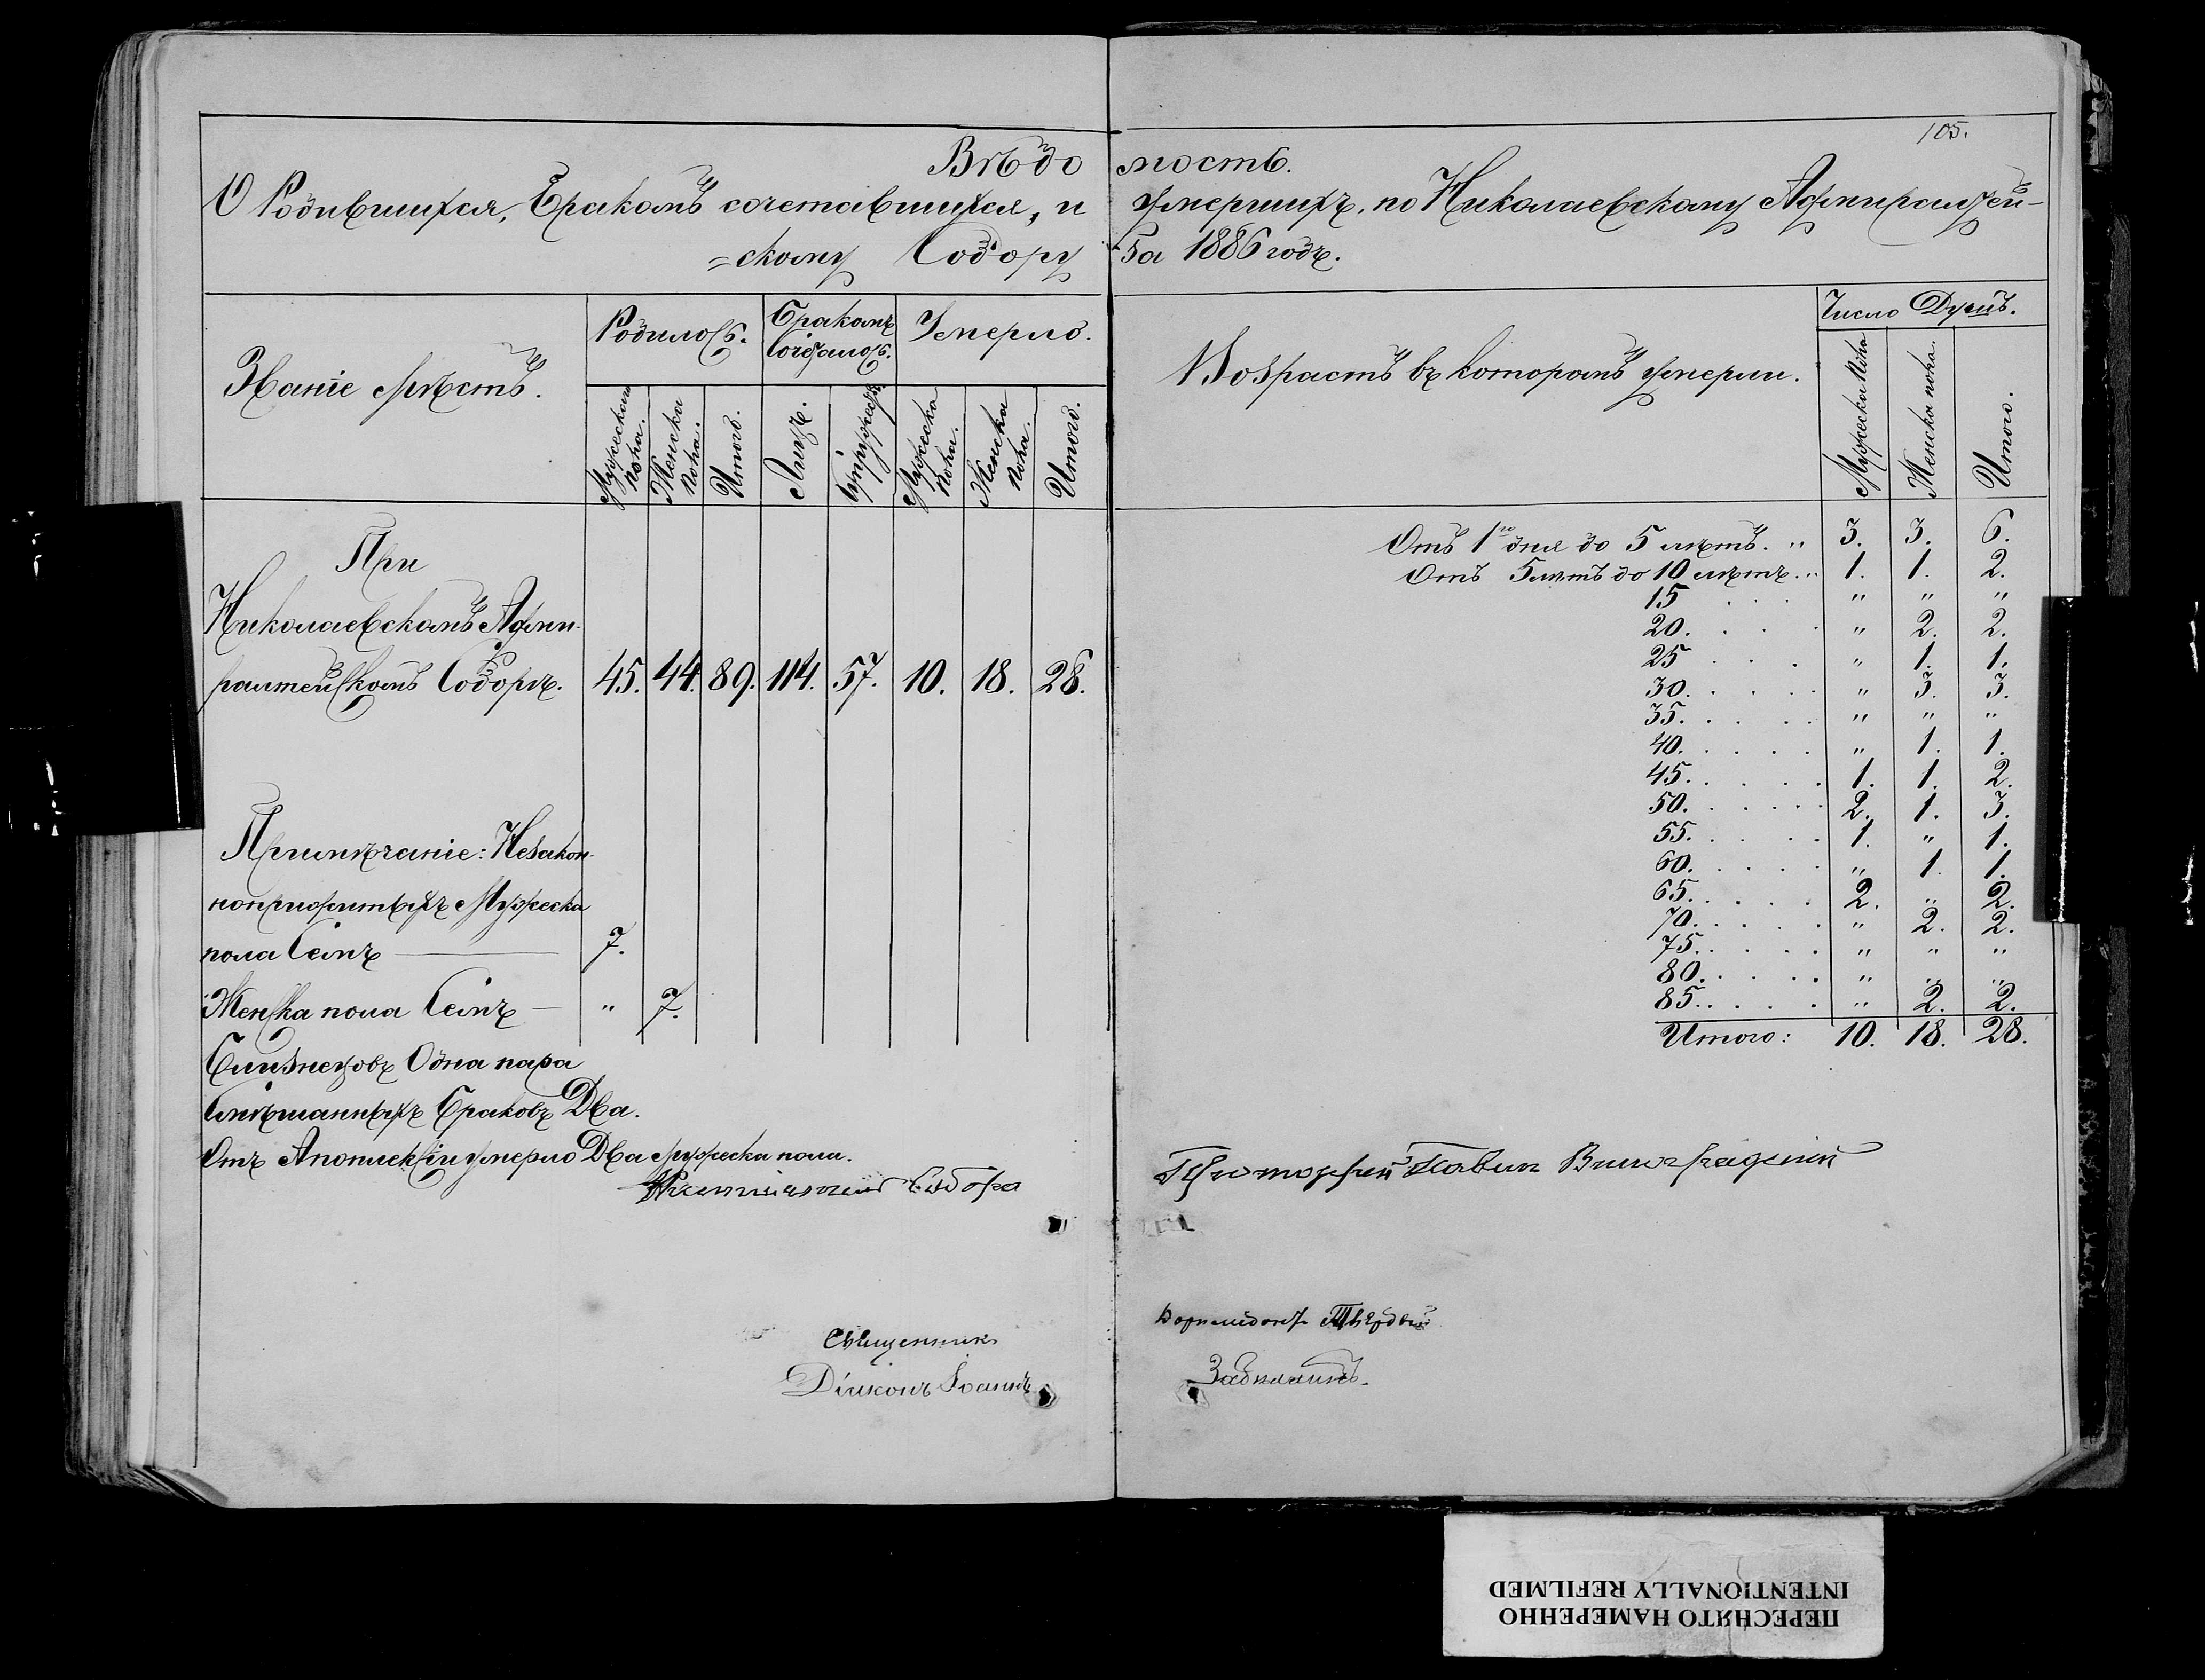 105.
Вѣдомость.
О Родившихся, Бракомъ сочетавшихся, и умершихъ, по Николаевскому Адмиралтей-
=скому Собору за 1886 годъ.
Званіе мѣстъ.
Родилось.
Бракомъ Сочеталось.
Умерло.
Мужеска пола.
Женска пола.
Итого.
Лицъ.
Супружествъ.
Мужеска пола.
Женска пола.
Итого.
При
Николаевскомъ Адми-
ралтейскомъ Соборѣ. 45. 44. 89. 114. 57. 10. 18. 28.
Примѣчаніе: Незакон-
ноприжитыхъ Мужеска
пола Семь 7.
Женска пола Семь — " 7.
Близнецовъ Одна пара
Смѣшанныхъ Браковъ Два.
Отъ Апоплексіи умерло Два мужеска пола.
Собора
Священникъ
Діаконъ Іоаннъ
Возрастъ въ которомъ умерли.
Число Душъ.
Мужеска пола
Женска пола.
Итого.
Отъ 1го дня до 5 лѣтъ. " 3. 3. 6.
Отъ 5 лѣтъ до 10 лѣтъ... 1. 1. 2.
15 . . . " " "
20. . . . " 2. 2.
25 . . . " 1. 1.
30. . . . . " 3. 3.
35. . . . . " " "
40. . . . . " 1. 1.
45. . . . . 1. 1. 2.
50. . . . . 2. 1. 3.
55. . . . . 1. " 1.
60. . . . . " 1. 1.
65. . . . . 2. " 2.
70. . . . . " 2. 2.
75. . . . . " " "
80. . . . . " " "
85. . . . . " 2. 2.
Итого: 10. 18. 28.
Протоіерей Павелъ Виноградскій
Твердый
ПЕРЕСНЯТО НАМЕРЕННО
INTENTIONALLY REFILMED